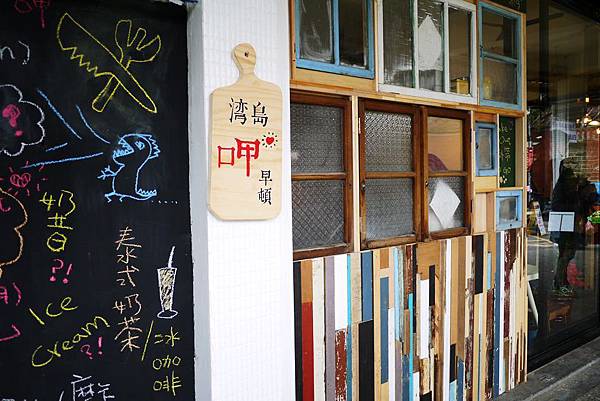 湾島
呷
早頓
奶昔
?!
Ice
Cream
?!
泰式奶茶
冰咖啡
摩卡